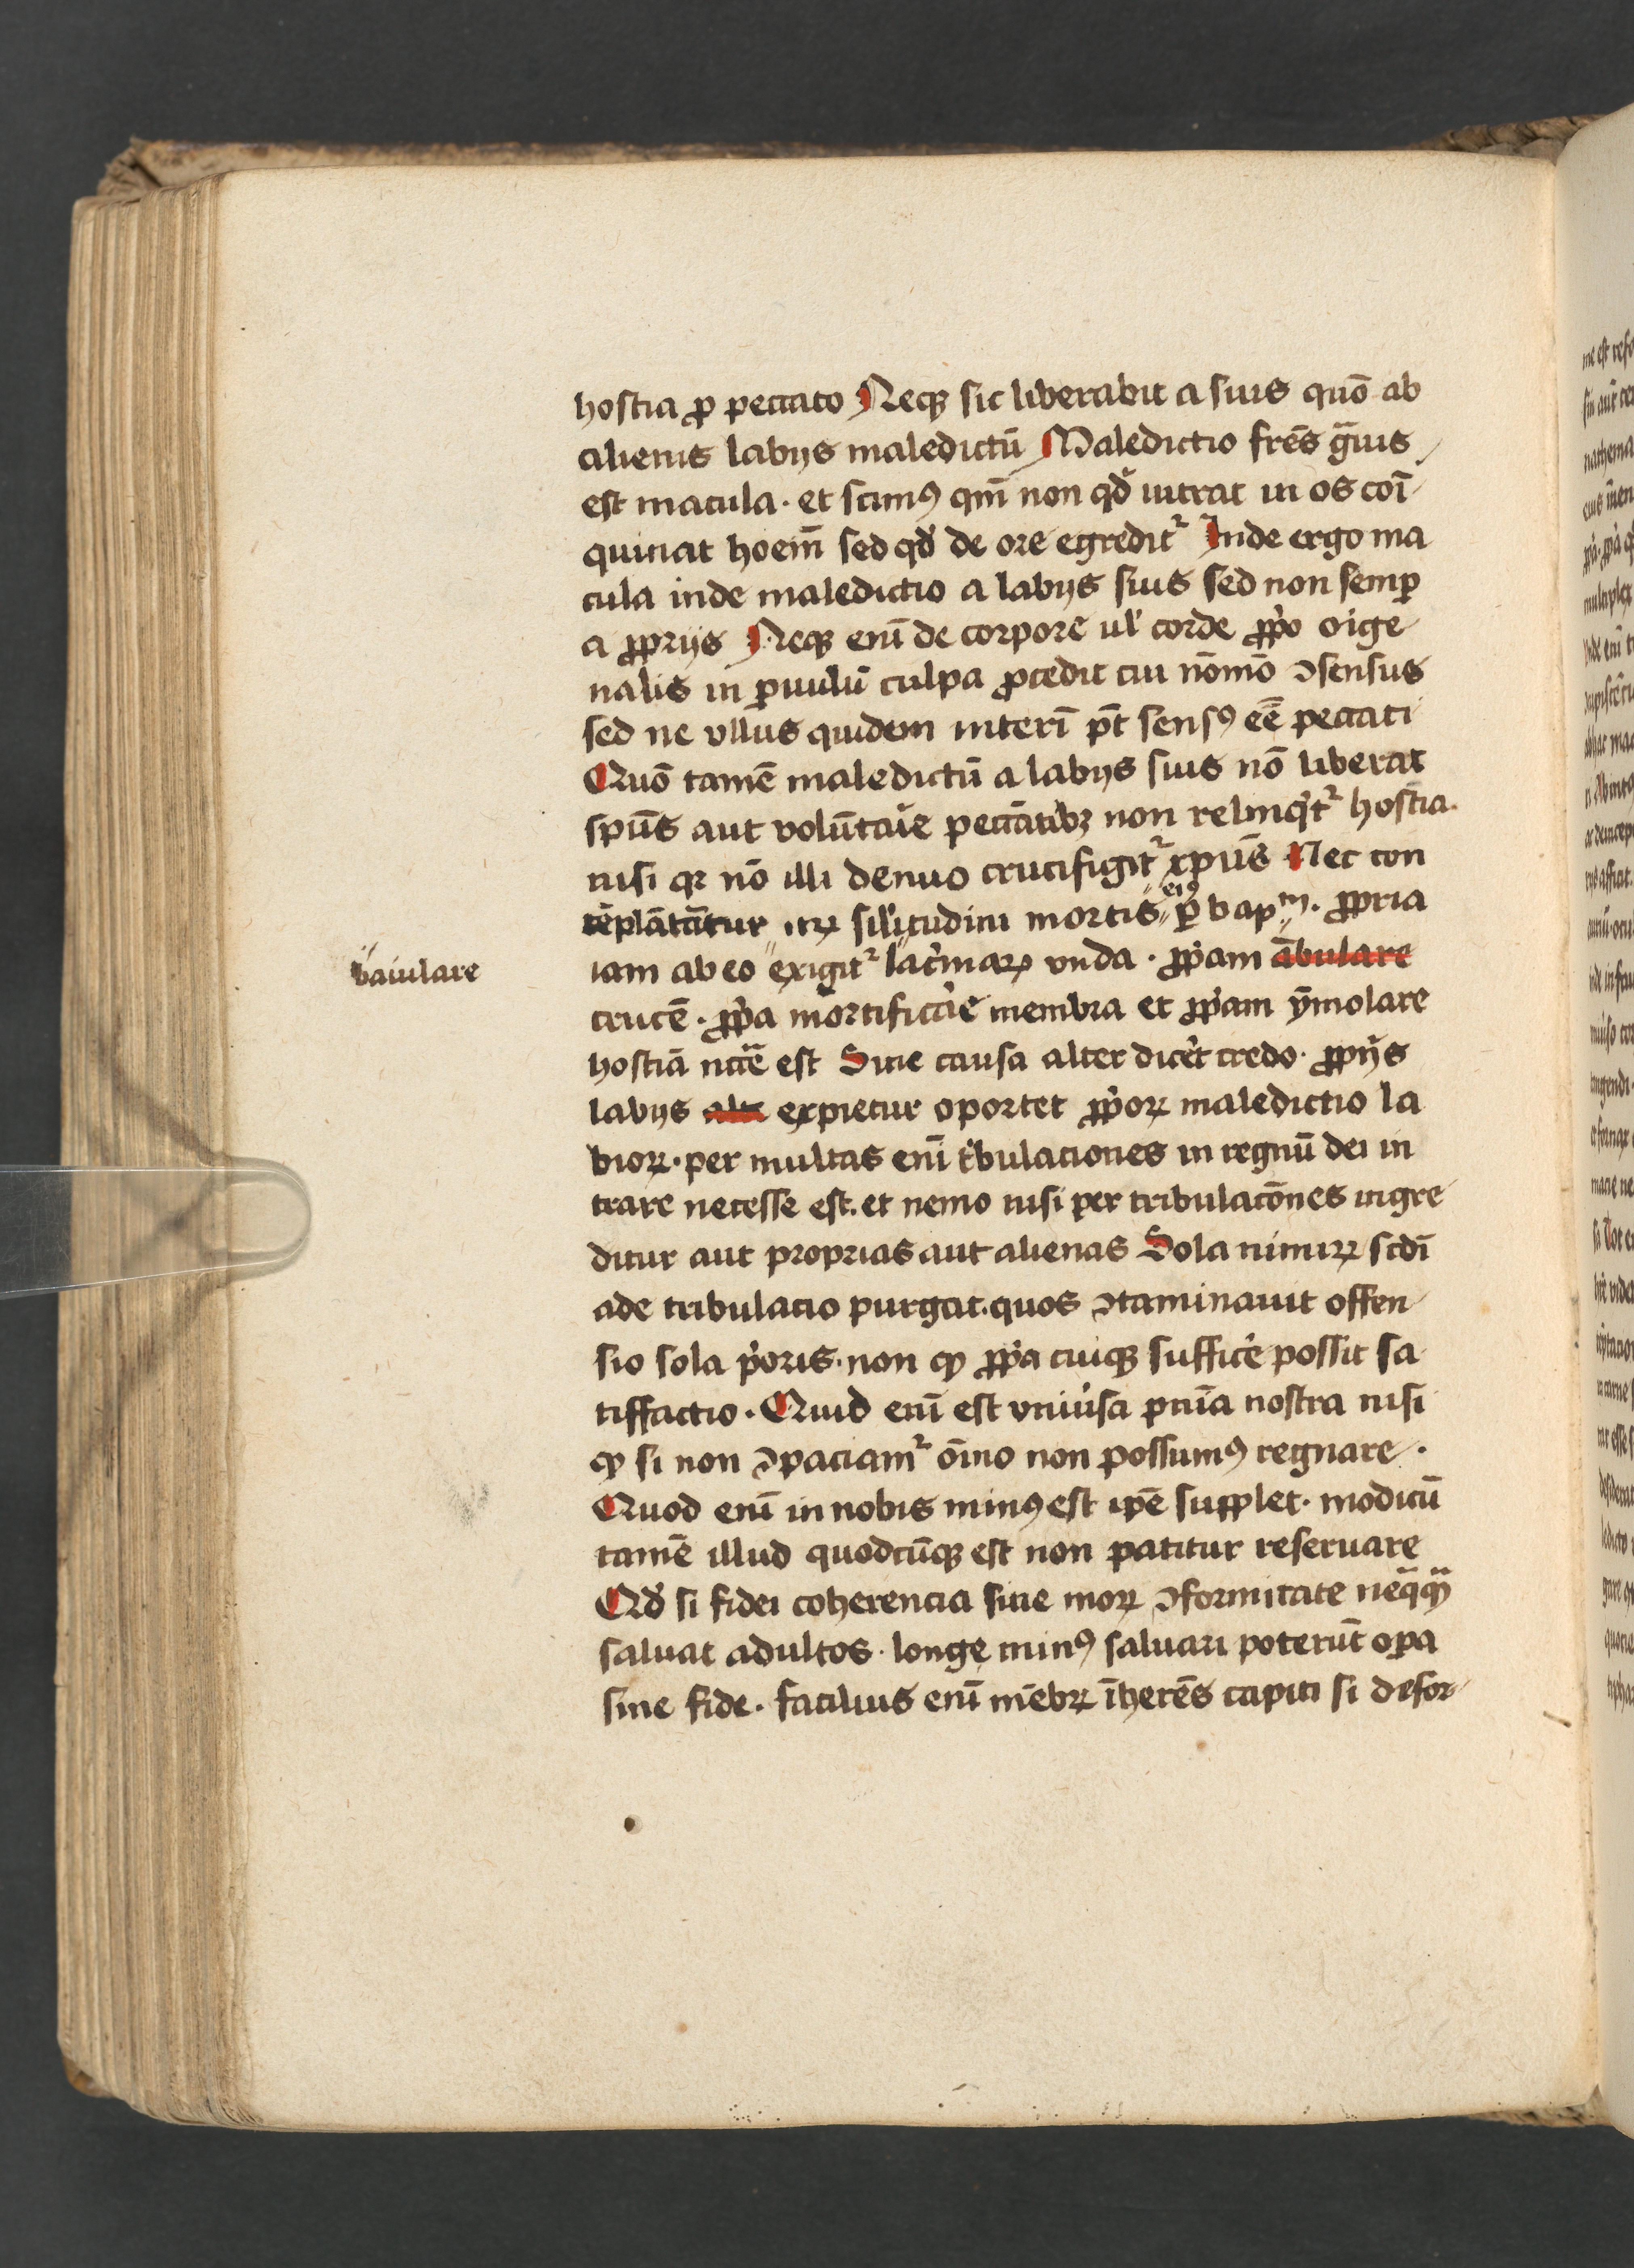 hostia ꝓ peccato Neqꝫ sic liberabit a suis quō ab
alienis labijs maledictū Maledictio frēs gͣuis
est macula · et scimꝰ qm̄ non qd̓ intrat in os coī
quinat hoēm sed qd̓ de ore egreditᷣ Inde ergo ma
cula inde maledictio a labijs suis sed non semꝑ
a ꝓprijs Neqꝫ enī de corpore ul̓ corde ꝓpͥo oͥige
nalis in ꝑuulū culpa ꝓcedit cui nōmō ꝯsensus
sed ne vllus quidem interī pōt sensꝰ eē peccati
Quō tamē maledictū a labijs suis nō liberat
spūs aut volūtaͥe peccātibꝫ non relinqͥtᷣ hostia ·
nisi qꝛ nō illi denuo crucifigitᷣ xpūs Nec con
tēplātātur itꝝ sil̓itudini mortis eiꝰ ꝑ bapᵐ · ꝓpria
iam ab eo exigitᷣ lacͥmaꝝ vnda · ꝓpͥam ābulare
baiulare
crucē · ꝓpͥa mortificac̓e membra et ꝓpͥam ymolare
hostiā nccē est Sine causa alter dic̓et credo · ꝓpͥijs
labijs alt expietur oportet ꝓpͥoꝝ maledictio la
bioꝝ · per multas enī tͥbulaciones in regnū dei in
trare necesse est · et nemo nisi per tribulacōnes ingre
ditur aut proprias aut alienas Sola nimiꝝ scd̄i
ade tribulacio purgat · quos ꝯtaminauit offen
sio sola pͥoris · non qꝫ ꝓpͥa cuiqꝫ suffic̓e possit sa
tiffactio · Quid enī est vniu̓sa pn̄ia nostra nisi
qꝫ si non ꝯpaciamᷣ oīno non possumꝰ regnare ·
Quod enī in nobis minꝰ est ip̄e supplet · modicū
tamē illud quodcūqꝫ est non patitur reseruare
Qd̓ si fidei coherencia sine moꝝ ꝯformitate neqͣqͣꝫ
saluat adultos · longe minꝰ saluari poterūt oꝑa
sine fide · facilius enī mēbꝝ īherēs capiti si defor